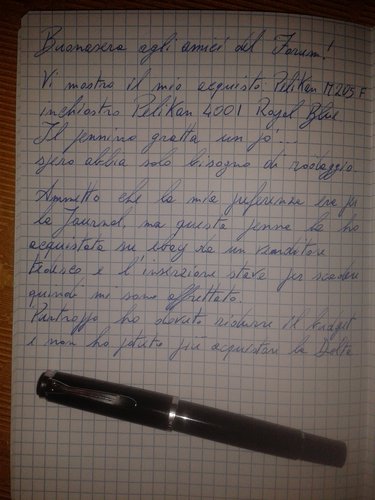 Buonasera agli amici del Forum!
Vi mostro il mio acquisto: Pelikan M205 F
inchiostro Pelikan 4001 Royal Blue
Il pennino gratta un po'...
spero abbia solo bisogno di rodaggio.
Ammetto che la mia preferenza era per
la Journal, ma questa penna la ho
acquistata su ebay da un venditore
tedesco e l'inserzione stava per scadere
quindi mi sono affrettato.
Purtroppo ho dovuto ridurre il budget
e non ho potuto più acquistare la Delta